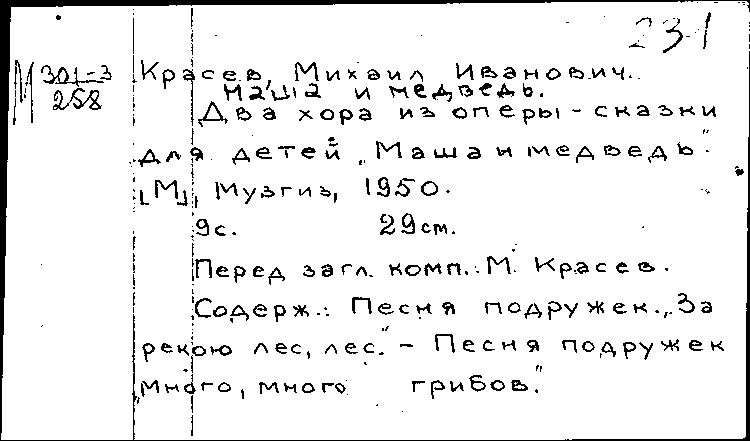 231
М 301-3
258
Красев, Михаил Иванович.
Маша и медведь.
Два хора из оперы - сказки
для детей „Маша и медведь".
[М], Музгиз, 1950.
9с. 29см.
Перед загл. комп.: М. Красев.
Содерж.: Песня подружек. „За
рекою лес, лес." - Песня подружек
„Много, много грибов."